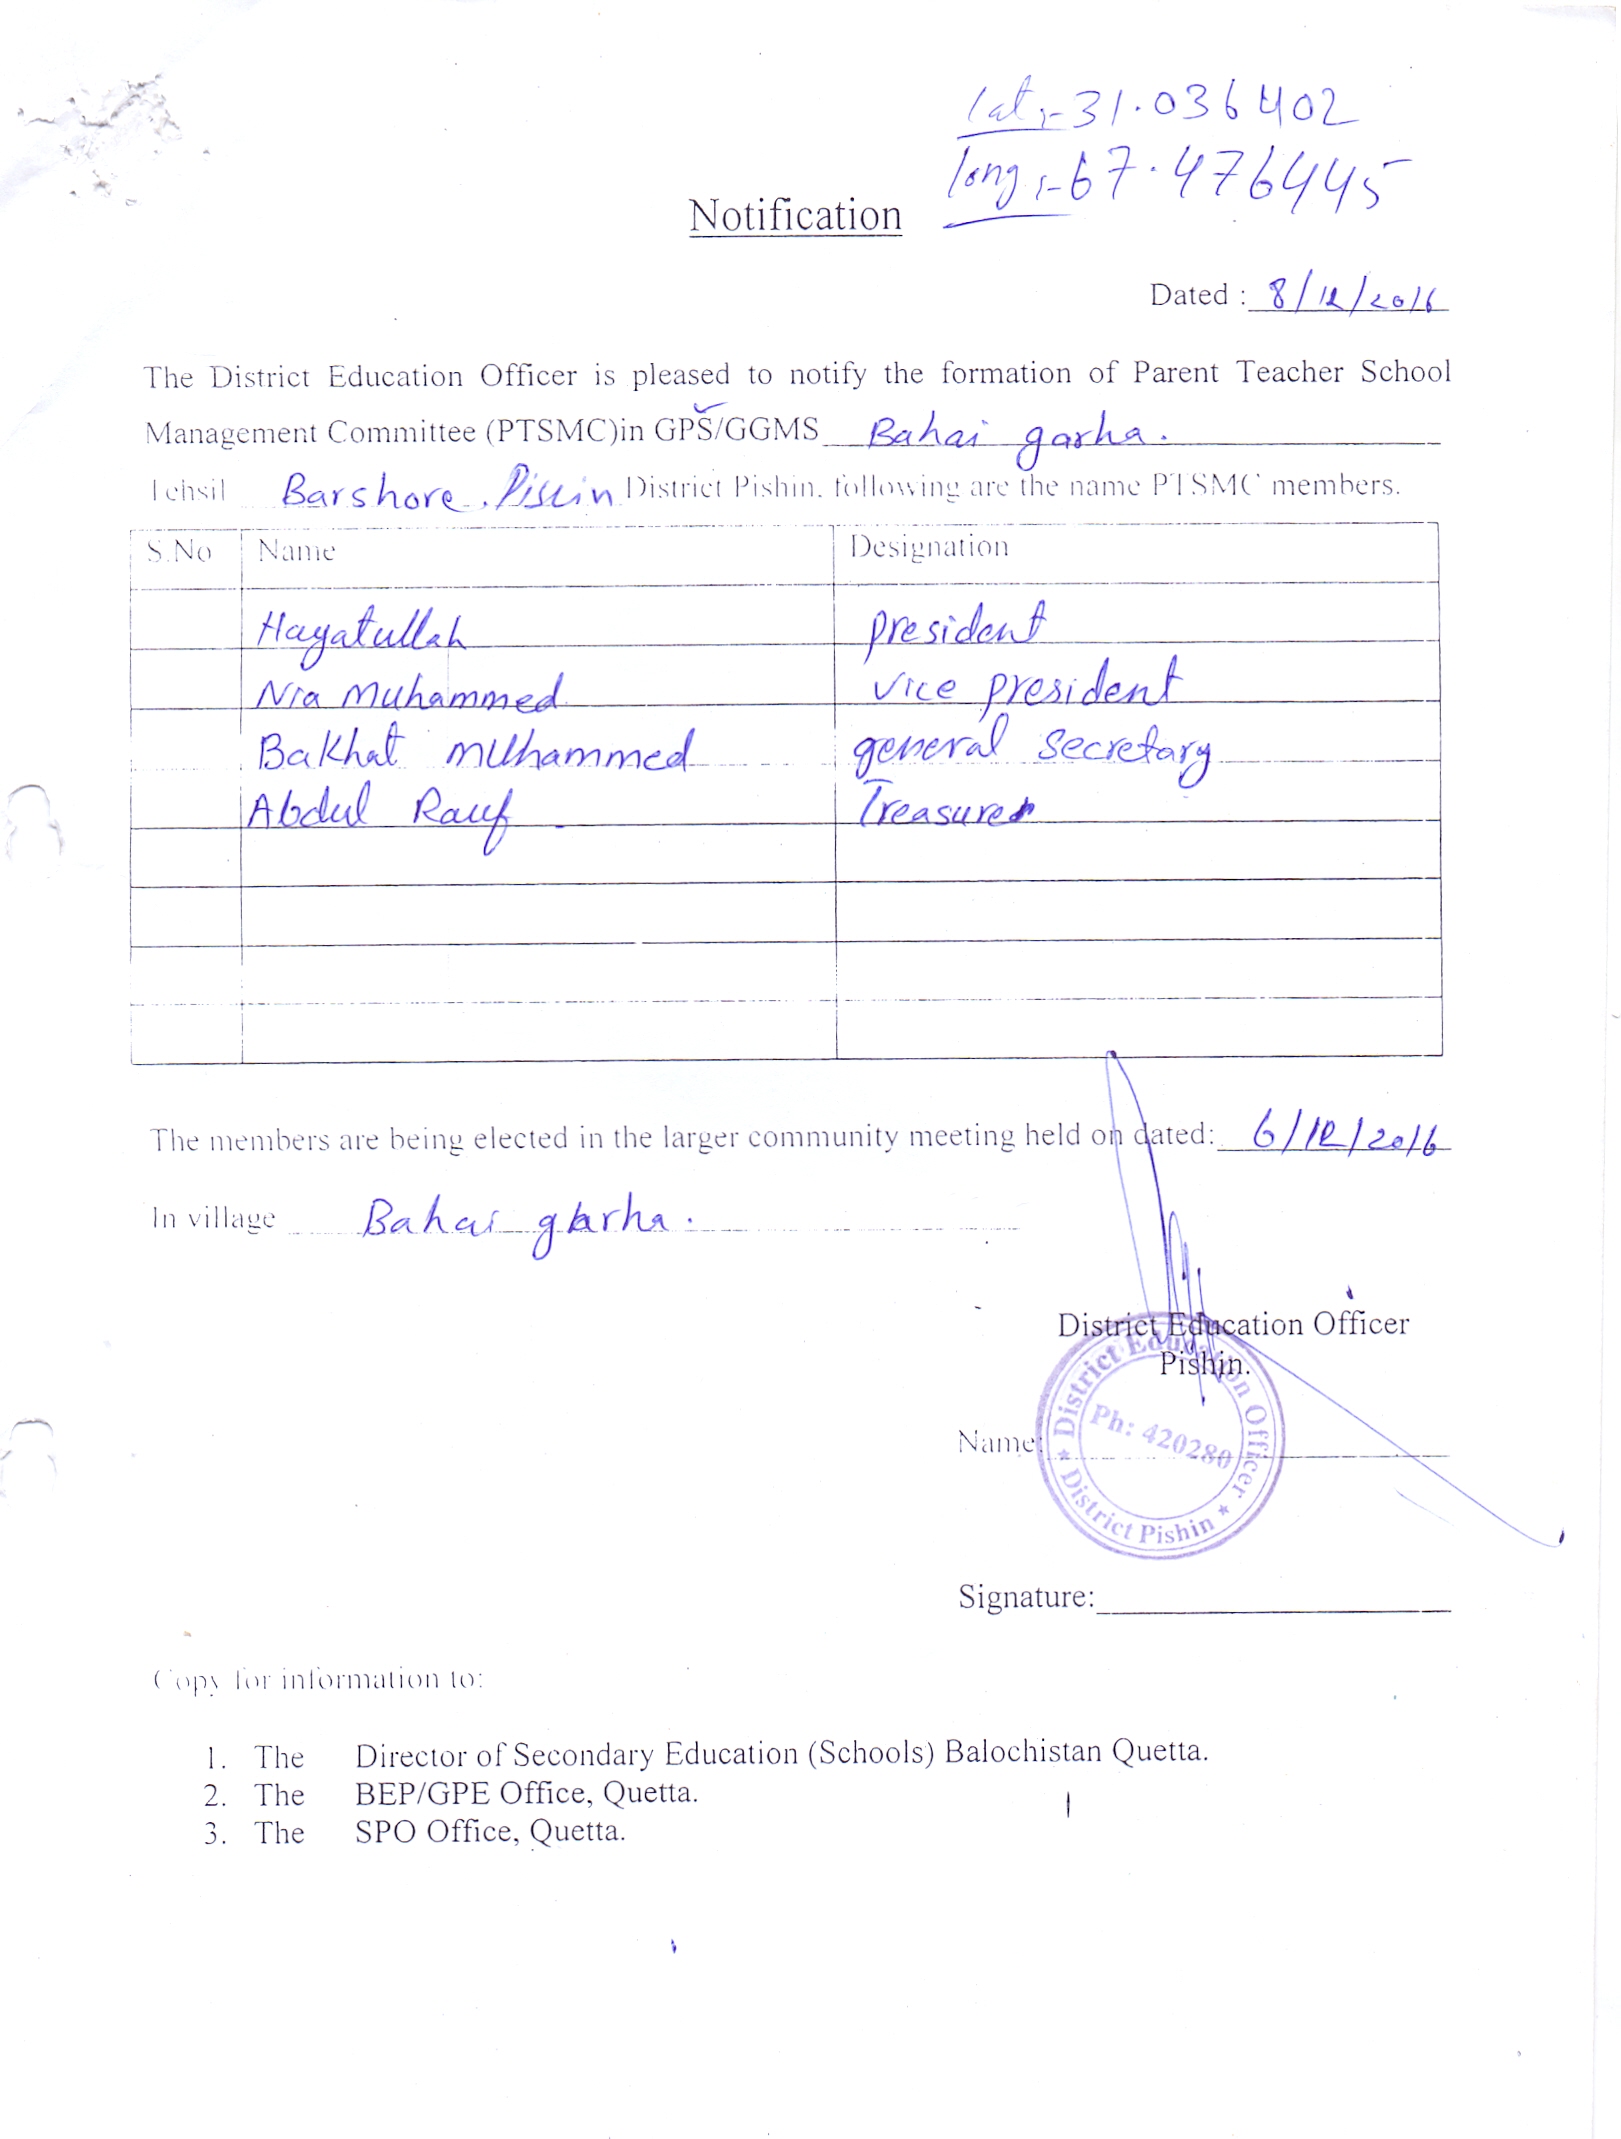 lat:- 31.036402
long:- 67.476445
Notification
Dated : 8/12/2016
The District Education Officer is pleased to notify the formation of Parent Teacher School
Management Committee (PTSMC)in GPS/GGMS Bahai garha.
Tehsil Barshore. Pissin District Pishin. following are the name PTSMC members.
S.No Name Designation
Hayatullah president
Nia Muhammed vice president
Bakhat muhammed general secretary
Abdul Rauf Treasurer
The members are being elected in the larger community meeting held on dated: 6/12/2016
In village Bahai garha.
District Education Officer
Pishin.
District Education Officer
Ph: 420280
District Pishin
Name:
Signature:
Copy for information to:
1. The Director of Secondary Education (Schools) Balochistan Quetta.
2. The BEP/GPE Office, Quetta.
3. The SPO Office, Quetta.